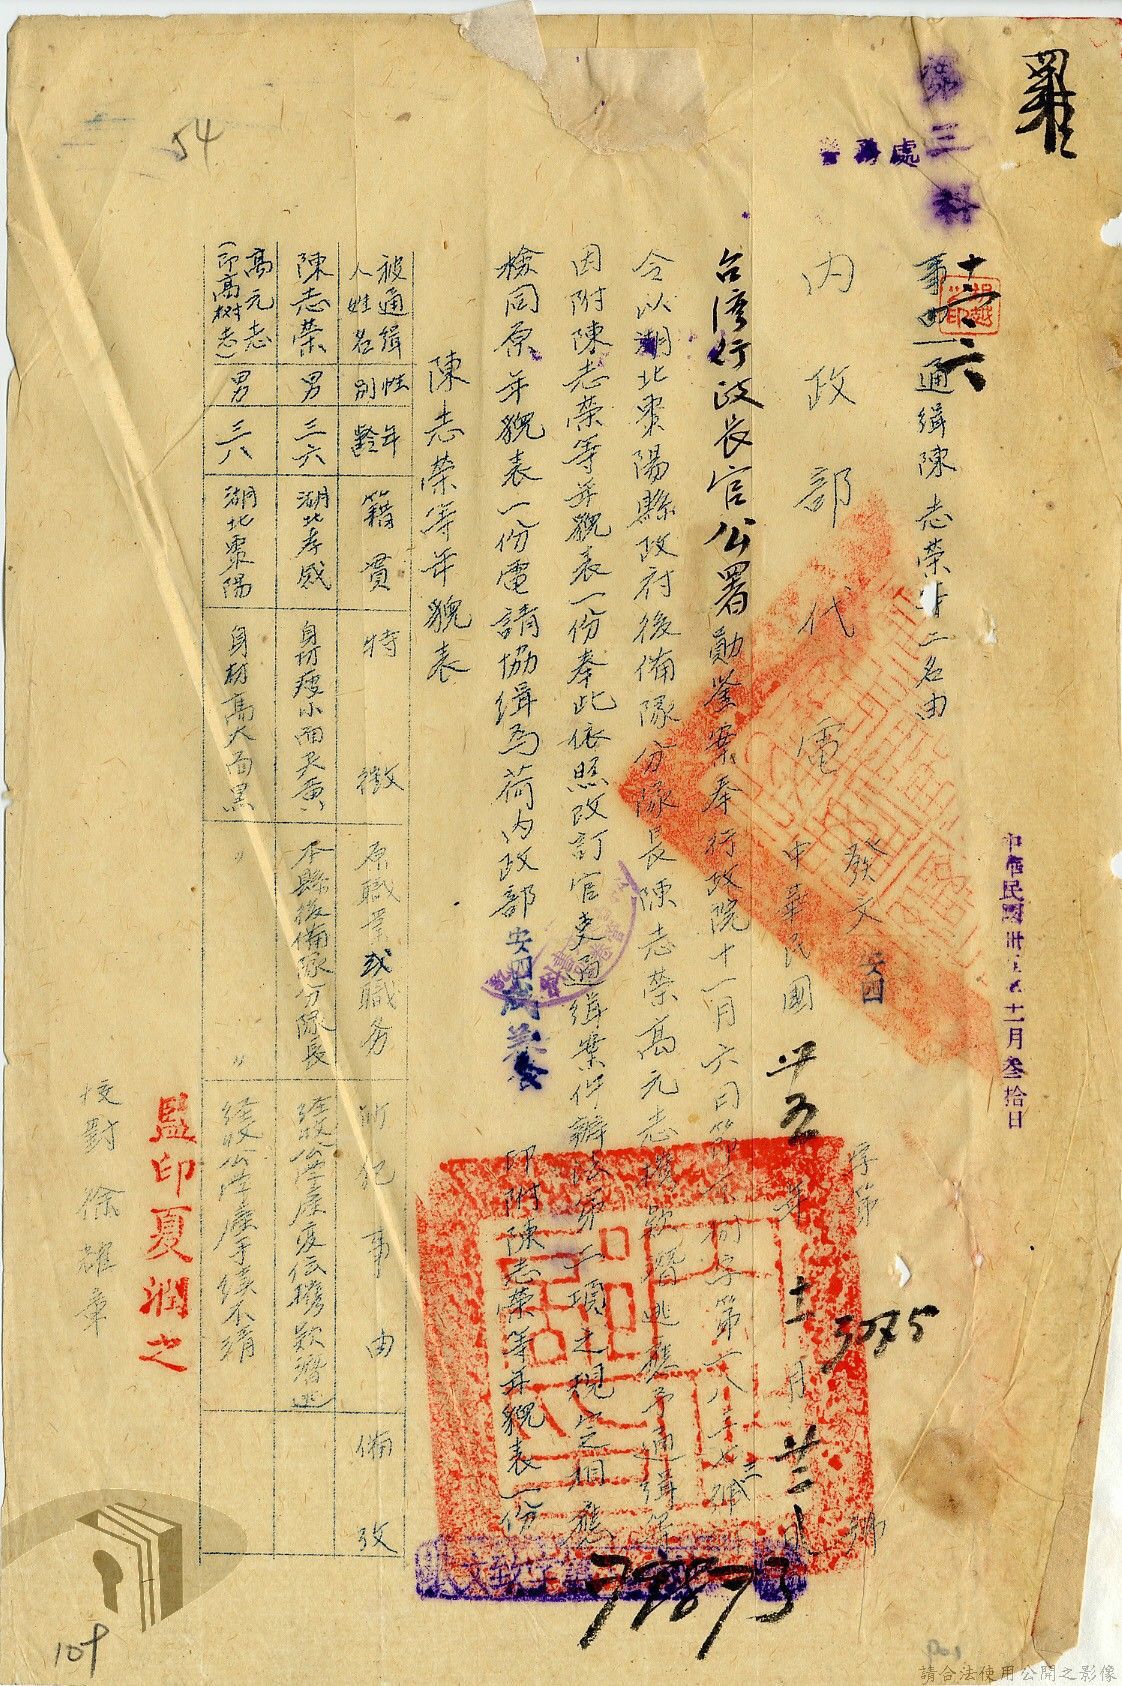 第三科
警務處
十二、六
事由 通緝陳志榮等二名由
中華民國卅五年十一月叁拾日
內政部代電
發文安四字第3075號
中華民國卅五年十一月廿三日
台湾行政长官公署勛鉴案奉行政院十一月六日節京捌字第一八三七三號
令以湖北棗陽縣政府後備隊分隊長陳志榮高元志攜款潛逃應予通缉等
因附陳志榮等年貌表一份奉此依照改訂官吏通緝案件辦法第二項之規定相應
檢同原年貌表一份電請協缉為荷內政部安四
印附陳志榮等年貌表一份
陳志榮等年貌表
被通缉人姓名 性別 年齡 籍貫 特徵 原職業或職务 所犯事由 備攷
陳志榮 男 三六 湖北孝感 身材瘦小面尖黄 本縣後備隊分隊長 經收公產變伝攜款潛逃
高元志(即高树志) 男 三八 湖北棗陽 身材高大面黑 〃 〃 經收公產手續不清
監印夏潤之
校對 徐耀章
收文致字第
72873
54
109
請合法使用公開之影像